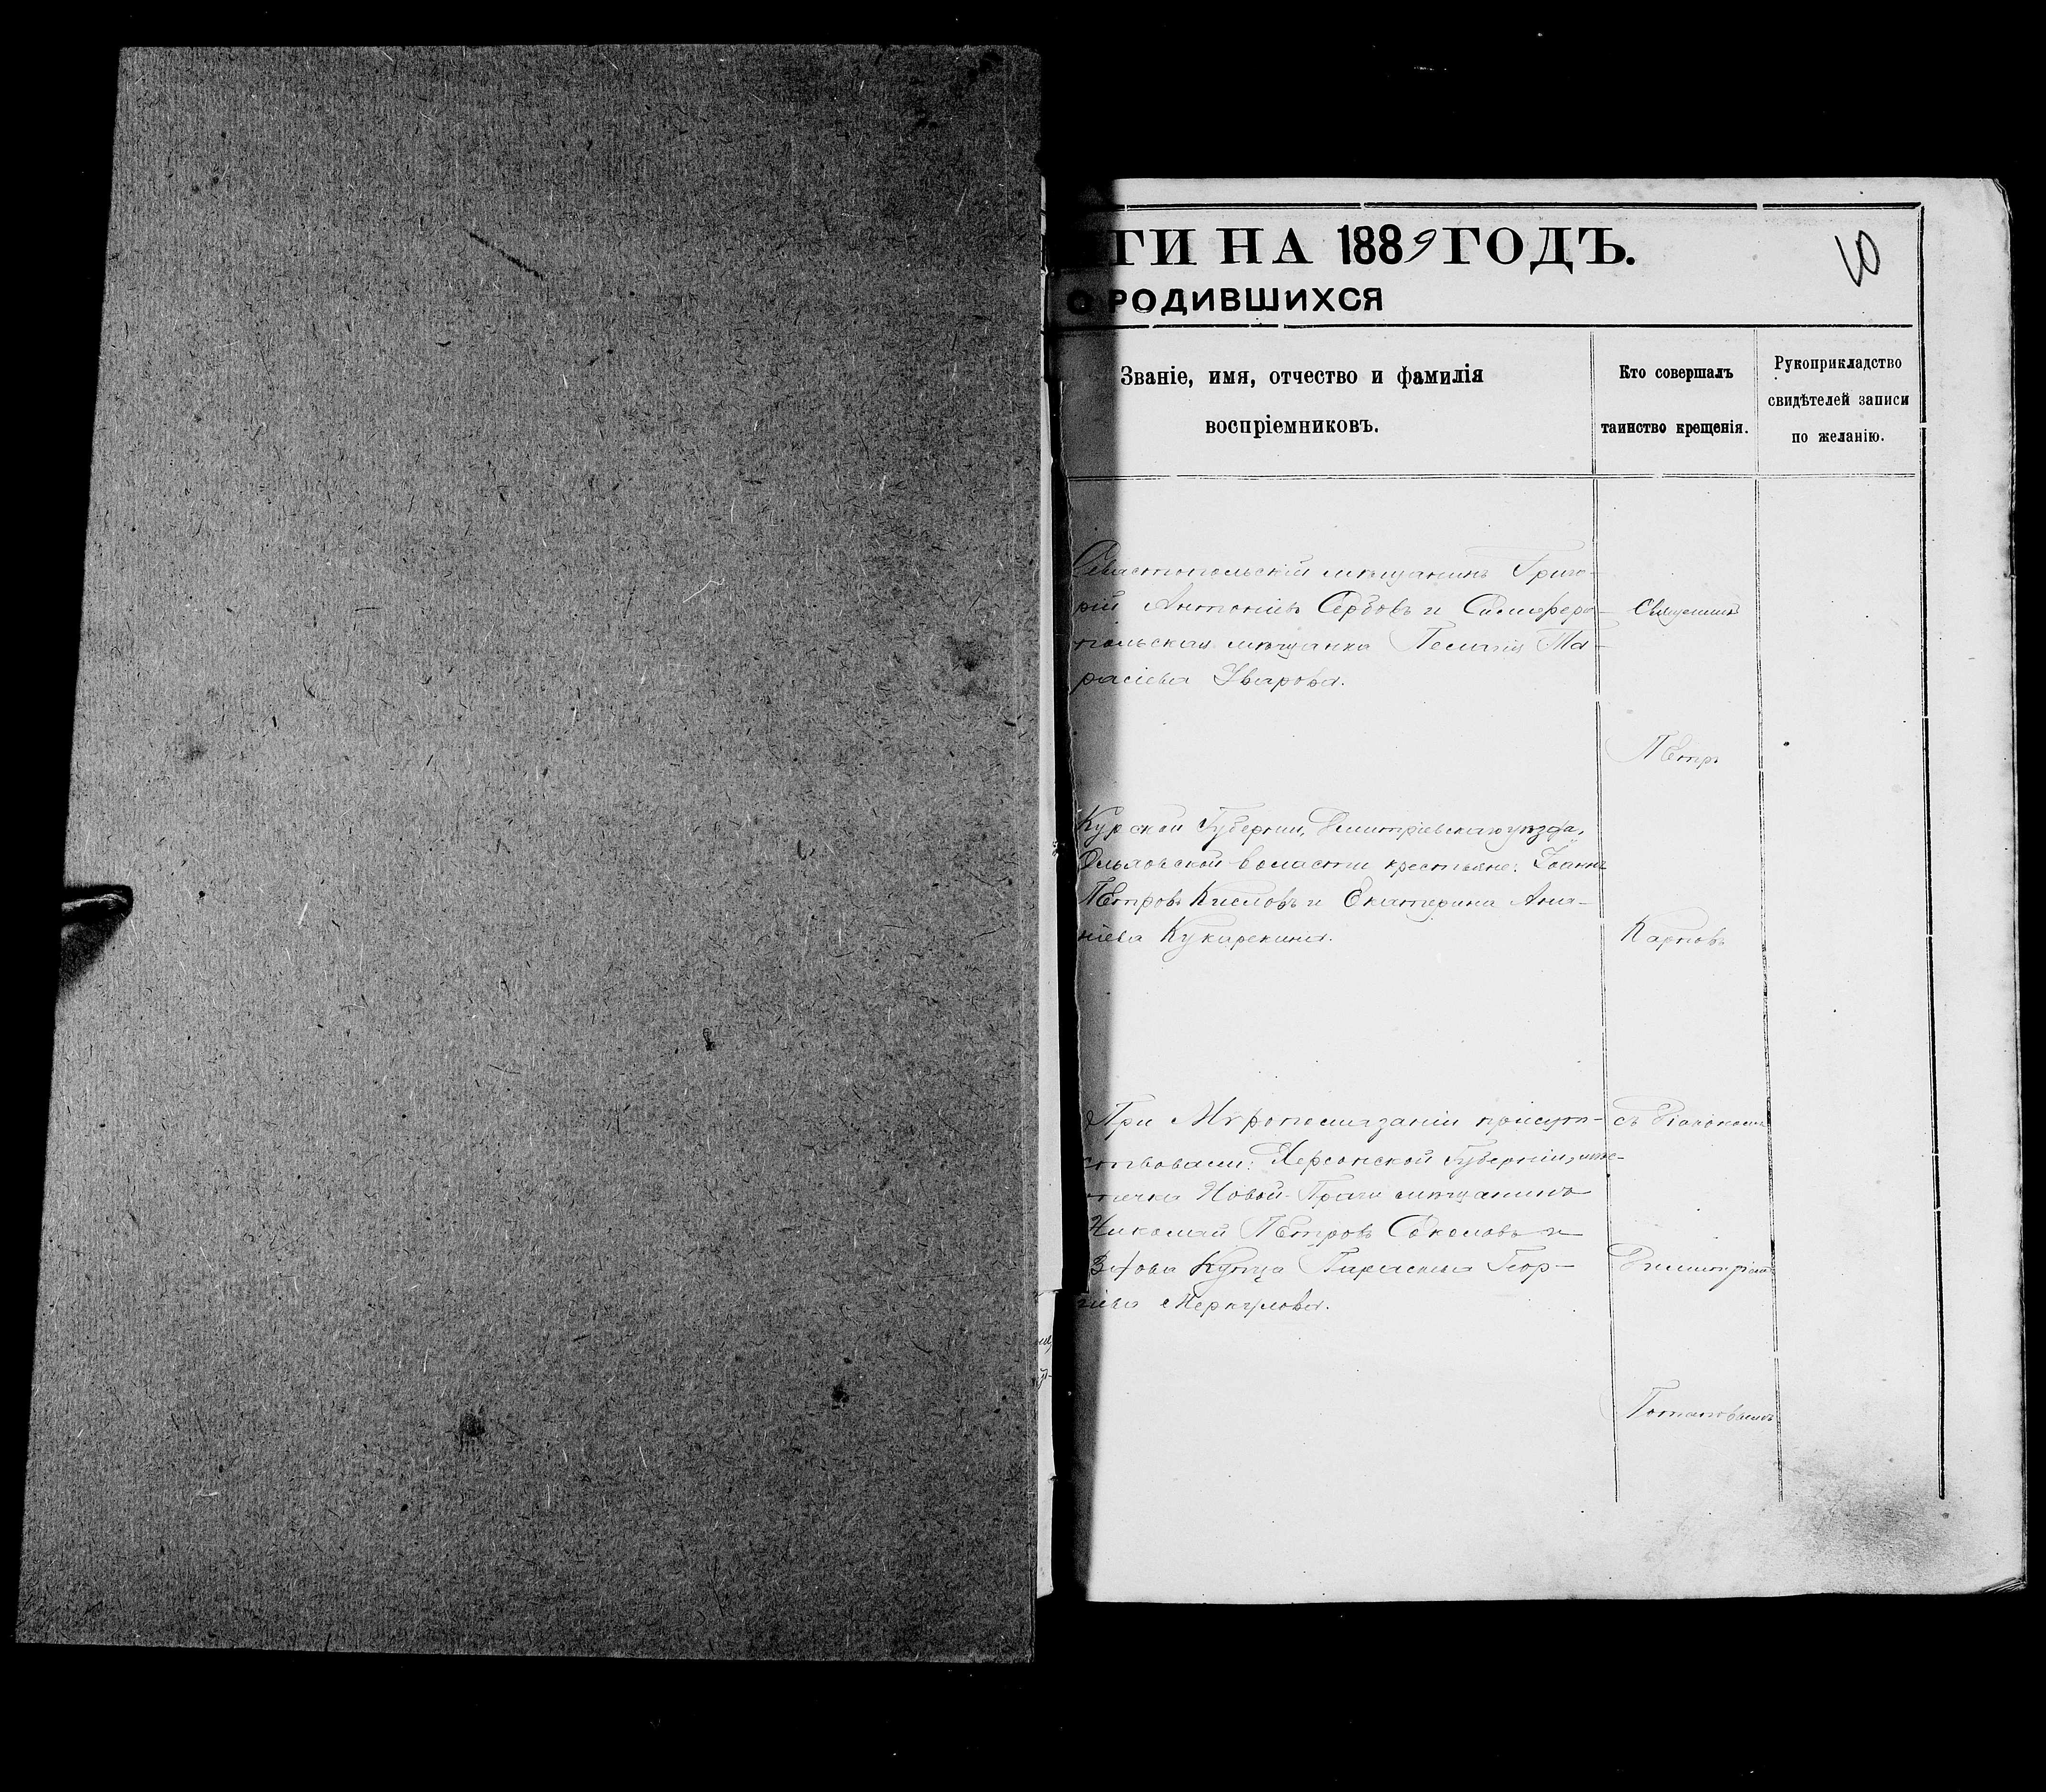 ГИ НА 1889 ГОДЪ.
10
О РОДИВШИХСЯ
Званіе, имя, отчество и фамилія
воспріемниковъ.
Кто совершалъ
таинство крещенія.
Рукоприкладство
свидѣтелей записи
по желанію.
Севастопольскій мѣщанинъ Григо-
рій Антоніевъ Сербовъ и Симферо-
польская мѣщанка Пелагія Та-
расіева Уварова.
Курской Губерніи, Димитріевскаго уѣзда,
волости крестьяне: Іоаннъ
Петровъ Кисловъ и Екатерина Ана-
ніева Кукарекина.
При Мѵропомазаніи присут-
ствовали: Херсонской Губерніи, мѣс-
течка Новой-Праги мѣщанинъ
Николай Петровъ Соколовъ и
Вдова Купца Параскева Геор-
гіева Меркулова.
Священникъ
Петръ
Карповъ
съ Діакономъ
Димитріемъ
Потаповымъ